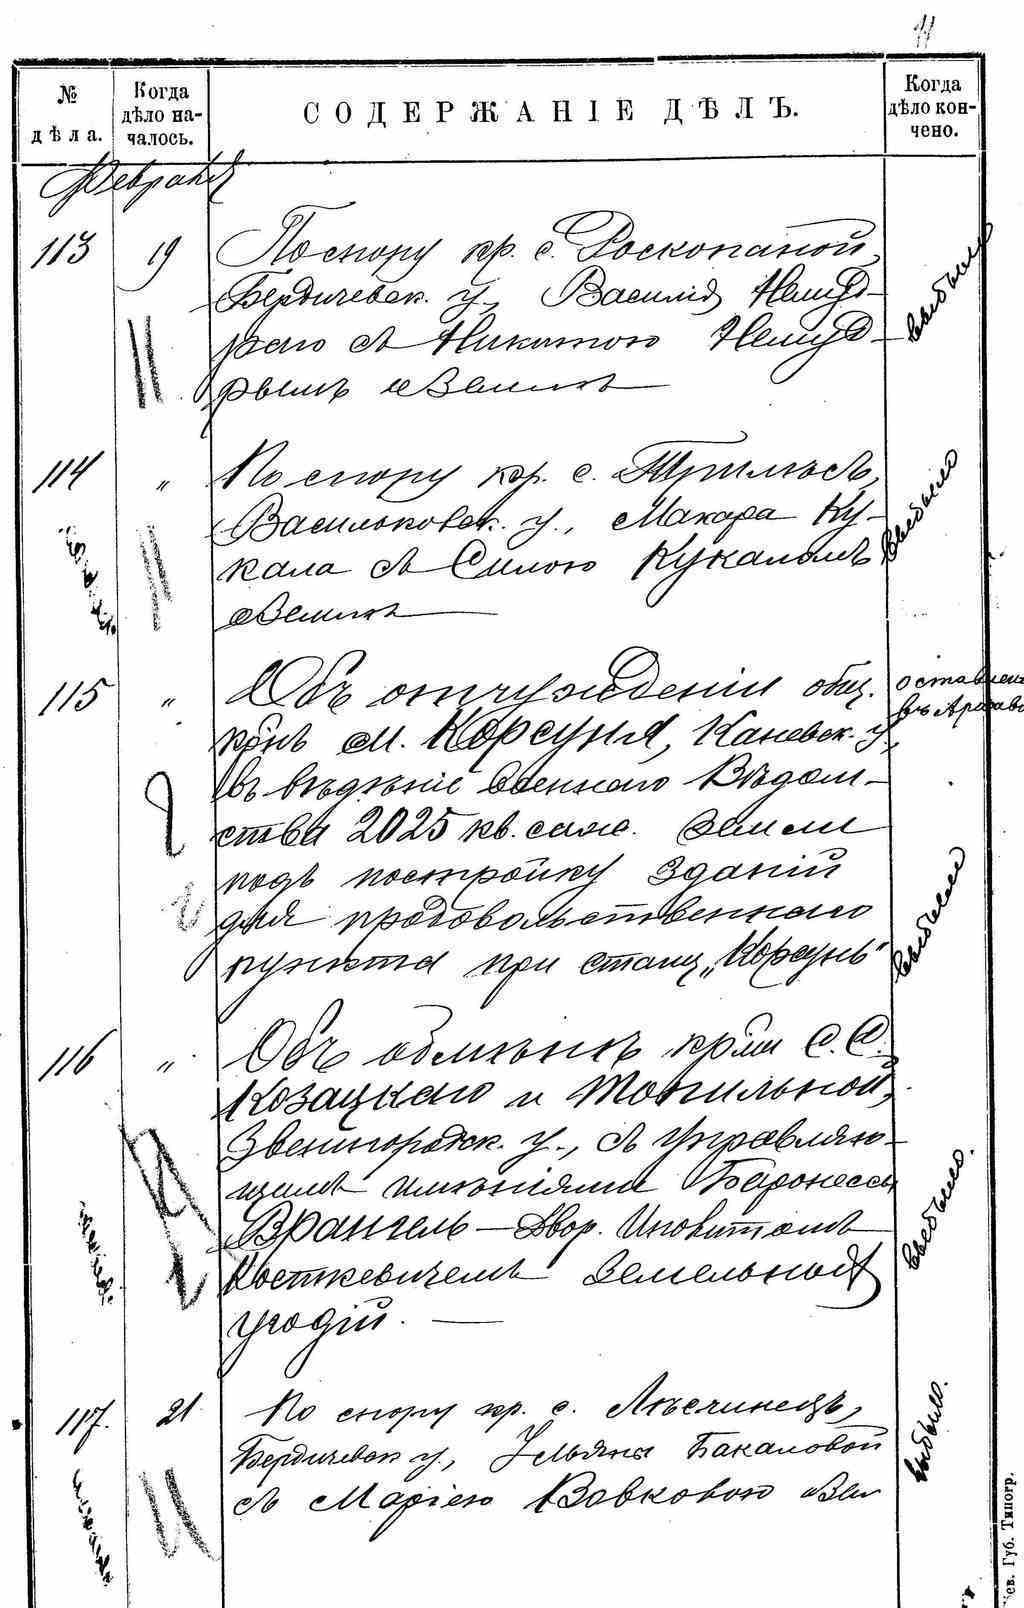 11
№
дѣла.
Когда
дѣло на-
чалось.
СОДЕРЖАНІЕ ДѢЛЪ.
Когда
дѣло кон-
чено.
Февраля
113 19 По спору кр. с. Роскопаной,
Бердичевск. у., Василія Немуд-
раго съ Никитою Немуд-
рымъ о землѣ
выбыло
114 " По спору кр. с. Трилѣсъ,
Васильковск. у., Макара Ку-
кала съ Силою Кукаломъ
о землѣ
выбыло
115 " Объ отчужденіи общ.
крнъ м. Корсуня, Каневск. у.,
въ вѣдѣніе военнаго Вѣдом-
ства 2025 кв. саж. земли
подъ постройку зданій
для продовольственнаго
пункта при станц. „Корсунь"
выбыло
116 " Объ обмѣнѣ кр-ми с.с.
Козацкаго и Топильной,
Звенигородск. у., съ управляю-
щимъ имѣніями Баронессы
Врангель — Двор. Ипполитомъ
Косткевичемъ земельной
угодій. —
выбыло.
117. 21 По спору кр. с. Лѣсчинецъ,
Бердичевск. у., Ульяны Бакаловой
съ Маріею Вовковою о зем
выбыло.
Губ. Типогр.